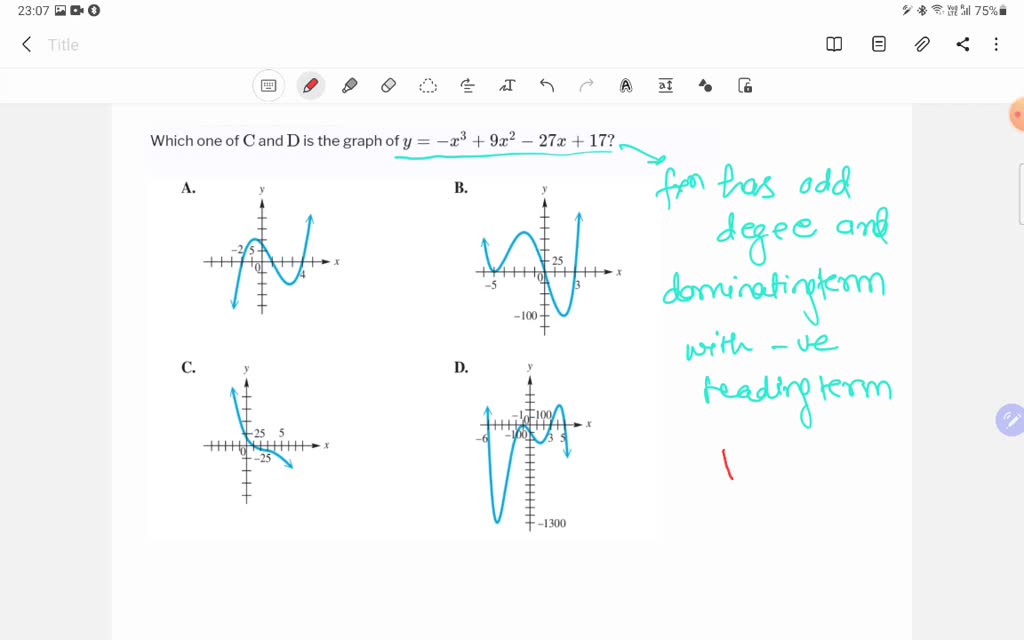 23:07 75%
Title
Which one of C and D is the graph of y = −x³ + 9x² − 27x + 17?
fxn has odd
degee and
dominating term
with -ve
leading term
A.
y
-2 5
0 4 x
B.
y
25
-5 0 3 x
-100
C.
y
25 5
0 x
-25
D.
y
-1 100
0 x
-6 -100 3 5
-1300